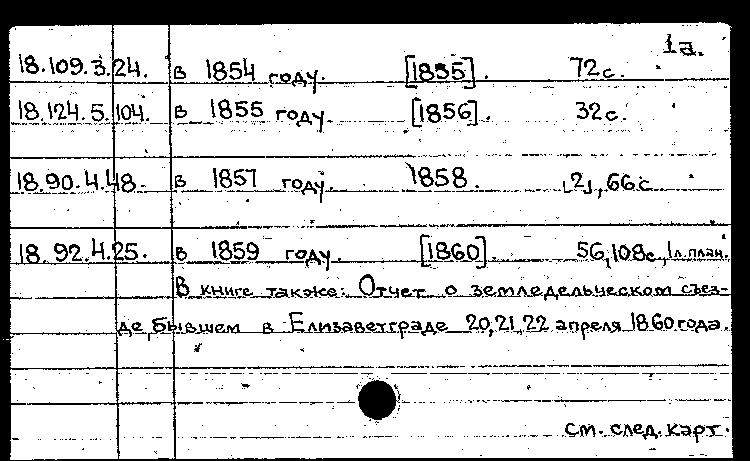 1а.
18.109.3.24. в 1854 году. [1855]. 72 с.
18.124.5.104. в 1855 году. [1856]. 32 с.
18.90.4.48. в 1857 году. 1858. 2, 66 с.
18.92.4.25. в 1859 году. [1860]. 56, 108 с., 1 л. план.
В книге также: Отчет о земледельческом съез-
де, бывшем в Елизаветграде 20, 21, 22 апреля 1860 года.
см. след. карт.